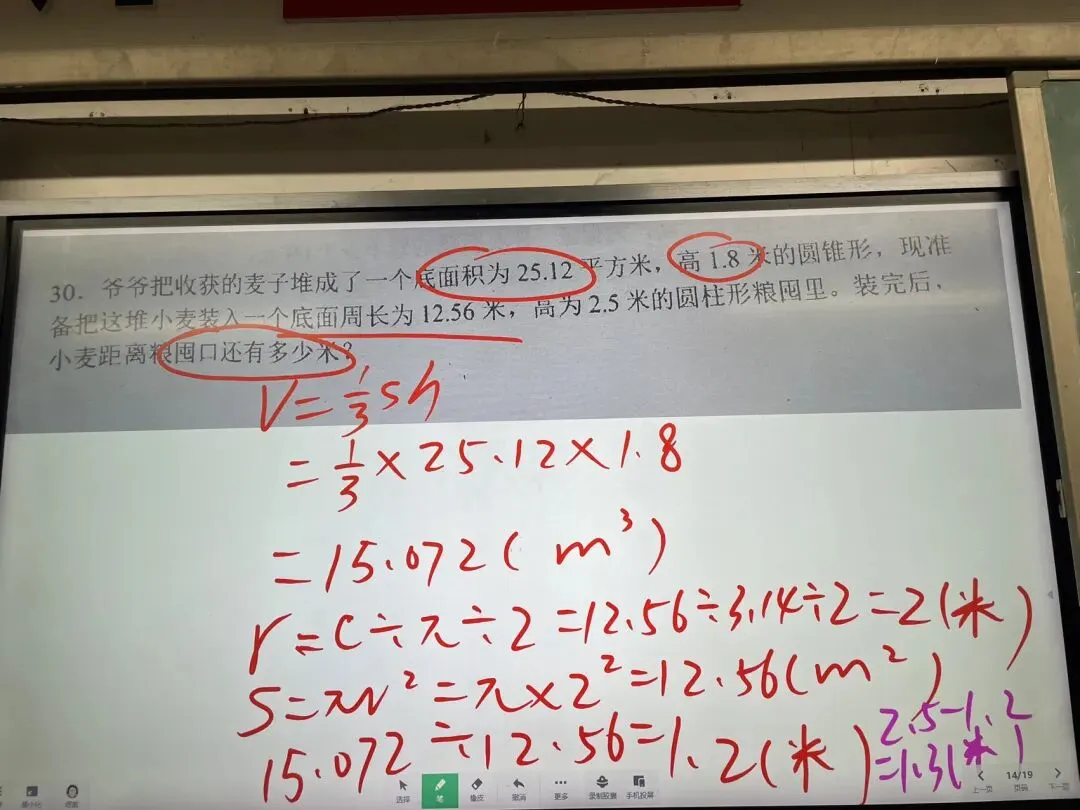 30. 爷爷把收获的麦子堆成了一个底面积为 25.12 平方米，高 1.8 米的圆锥形，现准
备把这堆小麦装入一个底面周长为 12.56 米，高为 2.5 米的圆柱形粮囤里。装完后，
小麦距离粮囤口还有多少米?
V=1/3sh
=1/3×25.12×1.8
=15.072(m³)
r=C÷π÷2=12.56÷3.14÷2=2(米)
S=πr²=π×2²=12.56(m²)
15.072÷12.56=1.2(米)
2.5-1.2
=1.3(米)
选择 笔 橡皮 撤消 更多 录制胶囊 手机投屏 上一页 14/19 页码 下一页